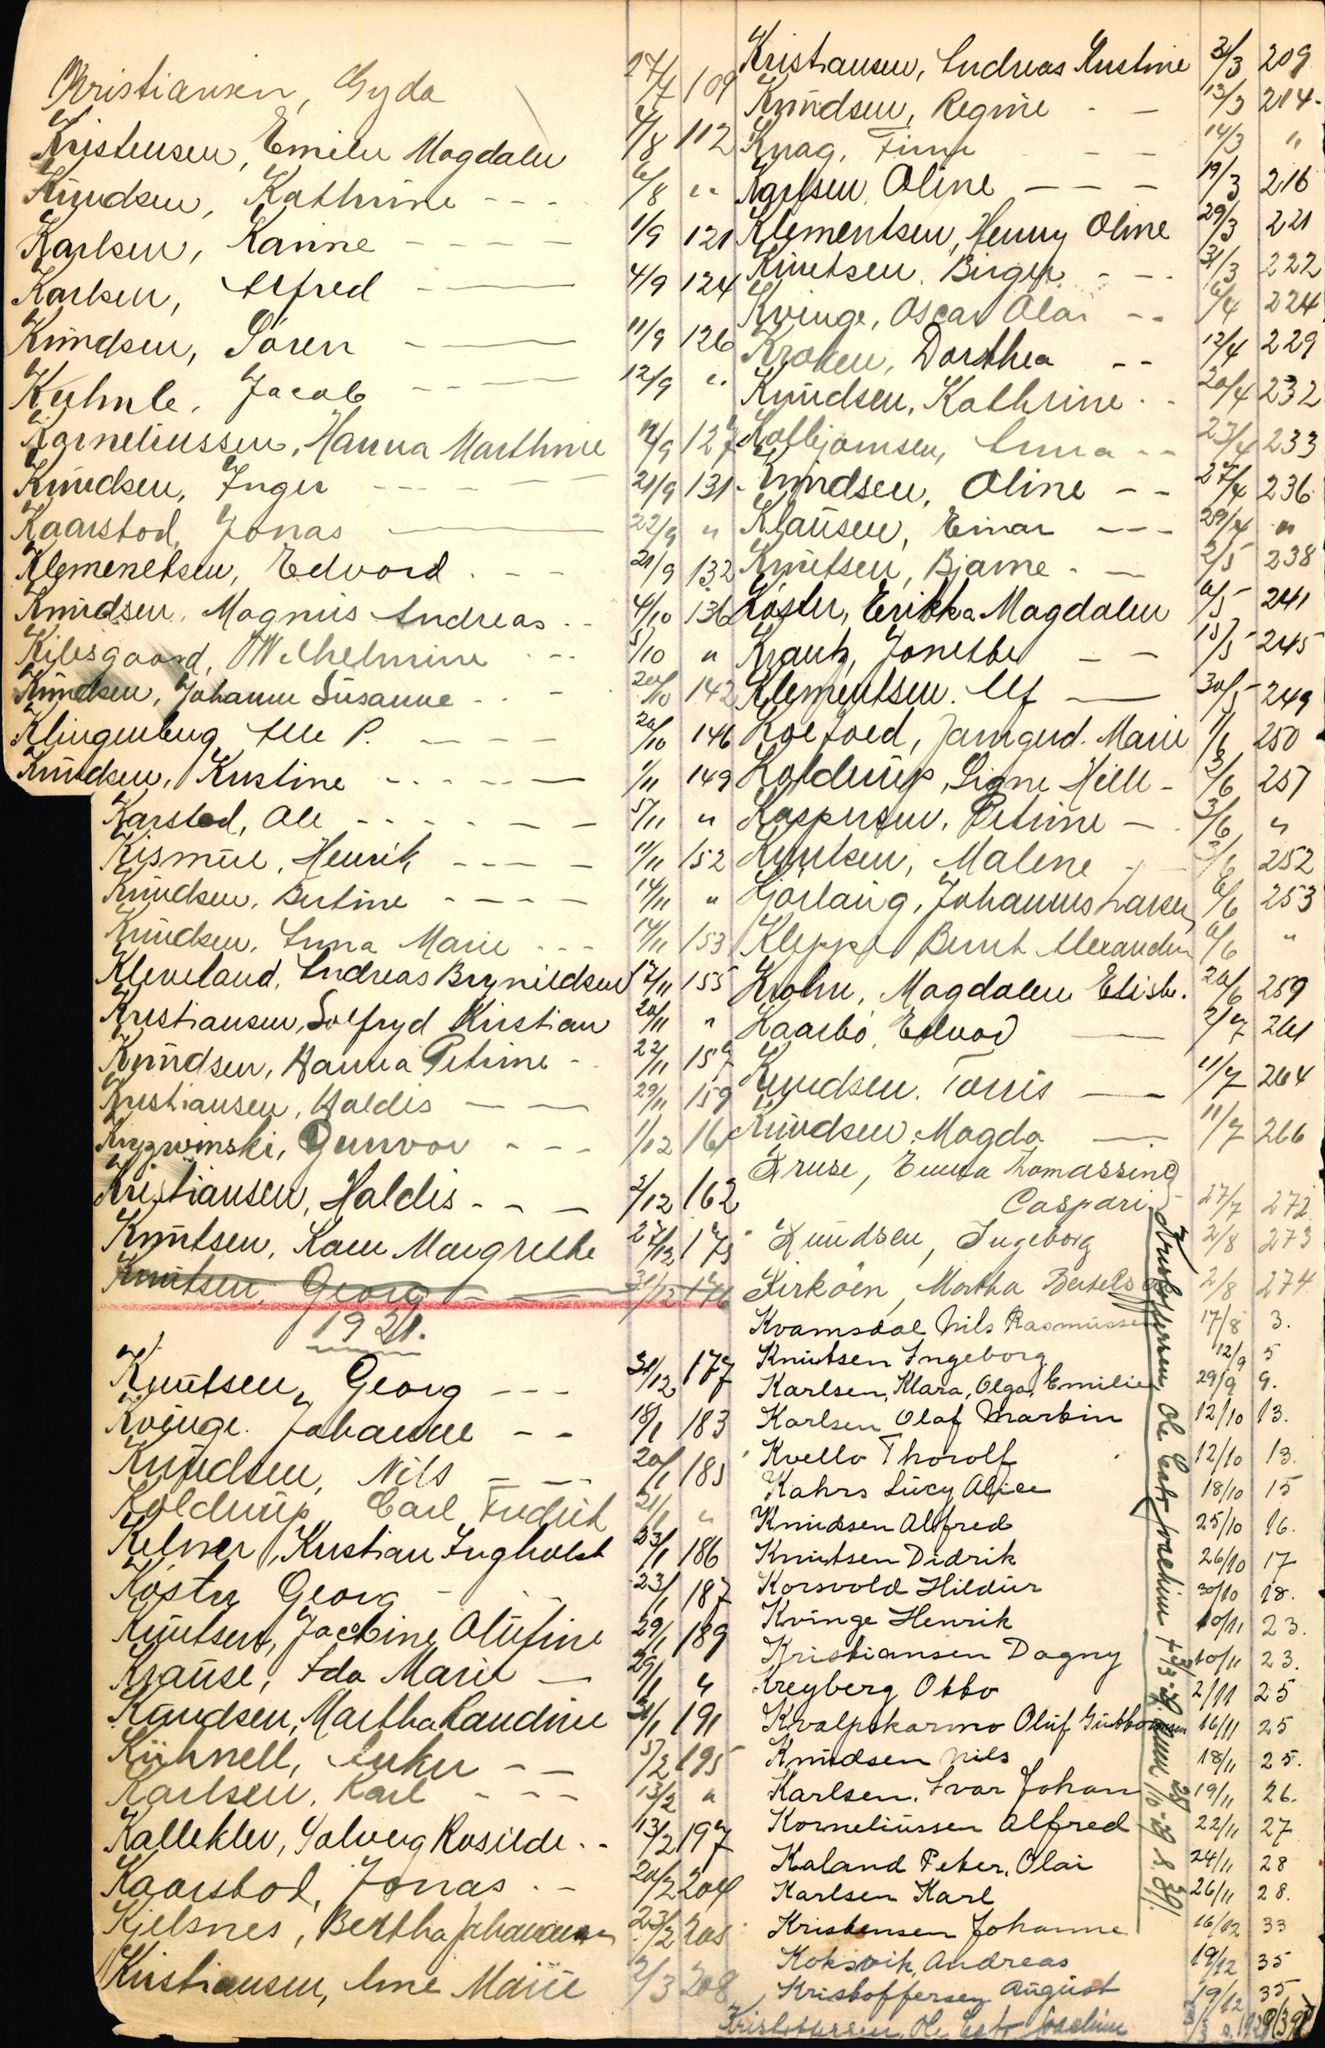 Kristiansen, Gyda 27/7 109
Kristensen, Emilie Magdalen 4/8 112
Knudsen, Kathrine - - - 6/8 "
Karlsen, Karine - - - - 1/9 121
Karlsen, Alfred - — 4/9 124
Knudsen, Sören - — 11/9 126
Kuhnle, Jacob - - — 12/9 "
Korneliussen, Hanna Marthine 14/9 127
Knudsen, Inger - - - - 21/9 131
Kaarstod, Jonas — 22/9 "
Klemenetsen, Edvard - - - 21/9 132
Knudsen, Magnus Andreas - - 4/10 136
Kilesgaard, Wilhelmine - - - 5/10 "
Knudsen, Johanne Susanne - - 20/10 142
Klingenberg, Alle P. - - - - 20/10 146
Knudsen, Kristine - - - - 1/11 149
Karstad, Ole - - - - - - 5/11 "
Kismul, Henrik - - - - 11/11 152
Knudsen, Bertine - - - - 14/11 "
Knudsen, Anna Marie - - - 14/11 153
Kleveland, Andreas Brynildsen 17/11 155
Kristiansen, Solfryd Kristian 20/11 "
Knudsen, Hanna Petrine - 22/11 157
Kristiansen, Haldis - — 29/11 159
Gunvor - - - 1/12 161
Kristiansen, Haldis - - - 2/12 162
Knutsen, Kare Margrethe 27/12 175
Knutsen, Georg 31/12 176
1921.
Knutsen, Georg - - - 31/12 177
Kvinge, Johanne - - 18/1 183
Knudsen, Nils - - - 20/1 185
Koldrup, Carl Fredrik 21/1 "
Kelner, Kristian Ingholdt 23/1 186
Köster Georg - 23/1 187
Knutsen, Jacobine Olufine 29/1 189
Krause, Ida Marie — 29/1 "
Knudsen, Martha Landine 31/1 191
Kühnell, Anker - - 5/2 195
Karlsen, Karl - - - 13/2 "
Kallekler, Solveig Rosilde - - 13/2 197
Kaarstod, Jonas - - 20/2 204
Kjelsnes, Bertha Johannesen 23/2 205
Kristiansen, Ane Marie 2/3 208
Kristiansen, Andreas Kristine 3/3 209
Knudsen, Regine - - 13/3 214
Knag, Finn - - 14/3 "
Karlsen, Oline - - - 19/3 216
Klementsen, Henny Oline 29/3 221
Knutsen, Birger - - - 31/3 222
Kvinge, Oscar Olai - - 6/4 224
Kroken, Dorthea - - 12/4 229
Knudsen, Kathrine - - 20/4 232
Kolbjornsen, Anna - - 23/4 233
Knudsen, Oline - - 27/4 236
Klausen, Einar - - - 29/4 "
Knutsen, Bjarne - - 2/5 238
Köster, Erikka Magdalen 6/5 241
Krantz, Jonette - - 15/5 245
Klementsen, Alf — 30/5 249
Koefoed, Marie 1/6 250
Koldrup, Signe Hille - 3/6 251
Kaspersen, Petrine - 3/6 "
Knutsen, Malene - 252
Kjörlaug, Johannes Larsen 6/6 253
Kleppe Bernt Alexander 6/6 "
Krohn, Magdalen Elisb. 20/6 259
Kaarbö, Edvard — 2/7 261
Knudsen, Torris — 11/7 264
Knudsen, Magda — 11/7 266
Kruse, Emma Thomassine
Caspari 27/7 272
Knudsen, Ingeborg 2/8 273
Kirköen, Martha Bertelsen 2/8 274
Kvamsdal Nils Rasmussen 17/8 3.
Knutsen Ingeborg 12/9 5
Karlsen, Klara, Olga, Emilie 29/9 9.
Karlsen Olaf Martin 12/10 13.
Kvello Thorolf 12/10 13.
Kahrs Lucy Alice 18/10 15
Knudsen Alfred 25/10 16.
Knutsen Didrik 26/10 17
Korsvold Hildur 30/10 18.
Kvinge Henrik 10/11 23.
Kristiansen Dagny 10/11 23.
Kreyberg Otto 2/11 25
Kvalpskarmo Oluf Guttormsen 16/11 25
Knudsen Nils 18/11 25.
Karlsen, Ivar Johan 19/11 26.
Korneliussen Alfred 22/11 27
Kaland Peter, Olai 24/11 28
Karlsen Karl 26/11 28.
Kristensen Johanne 16/12 33
Koksvik, Andreas 19/12 35
Kristoffersen August 19/12 35
Kristoffersen, Ole Joachim
Kristoffersen, Ole Joachim